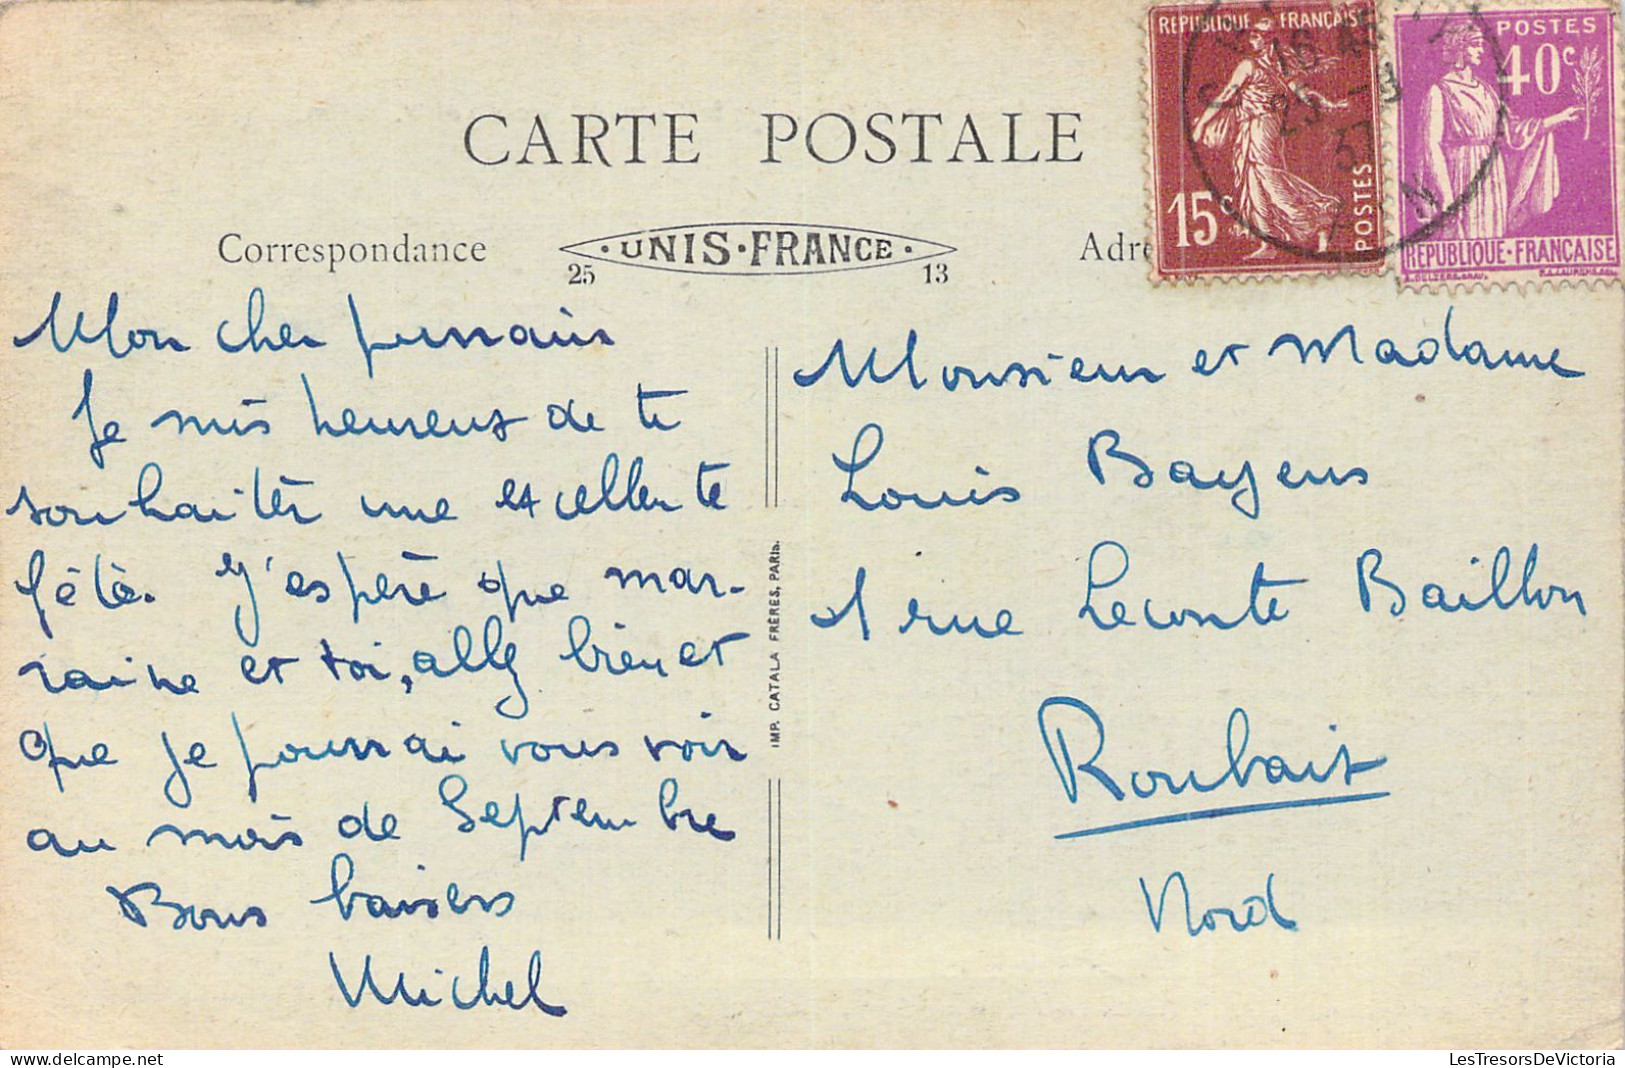 CARTE POSTALE
Correspondance
UNIS·FRANCE
25 13
Adre
REPUBLIQUE FRANÇAISE
15c
POSTES
POSTES
40c
REPUBLIQUE·FRANÇAISE
16
25 -8
37
Mon cher parrain
Je suis heureux de te
souhaiter une excellente
fête. J'espère que mar-
raine et toi, allez bien et
que je pourrai vous voir
au mois de Septembre
Bons baisers
Michel
IMP. CATALA FRÈRES, PARIS.
Monsieur et Madame
Louis Bayens
1 rue Leconte Baillon
Roubaix
Nord
www.delcampe.net
LesTresorsDeVictoria